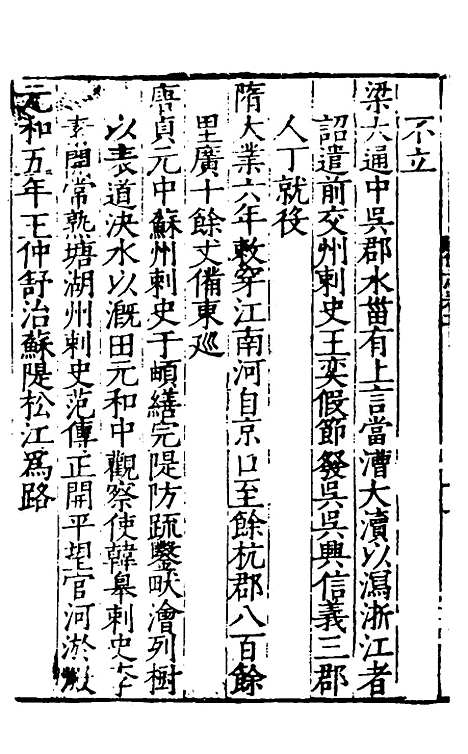 不立
梁大通中吳郡水菑有上言當漕大瀆以瀉浙江者
詔遣前交州剌史王奕假節發吳吳興信義三郡
人丁就役
隋大業六年敕穿江南河自京口至餘杭郡八百餘
里廣十餘丈備東廵
唐貞元中蘇州剌史于頔繕完隄防疏鑿畎澮列樹
以表道決水以溉田元和中觀察使韓皋剌史李
素開常熟塘湖州剌史范傳正開平望官河淤澱
元和五年王仲舒治蘇隄松江爲路